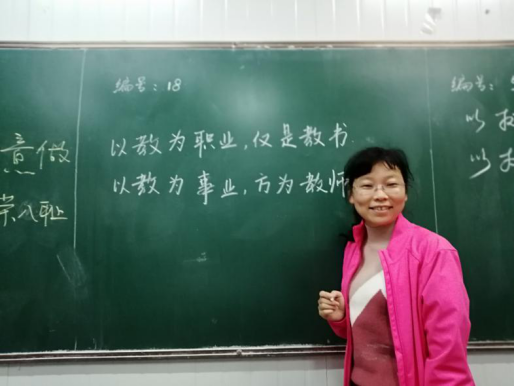 编号：18
以教为职业，仅是教书
以教为事业，方为教师
意做
编号：
以
以